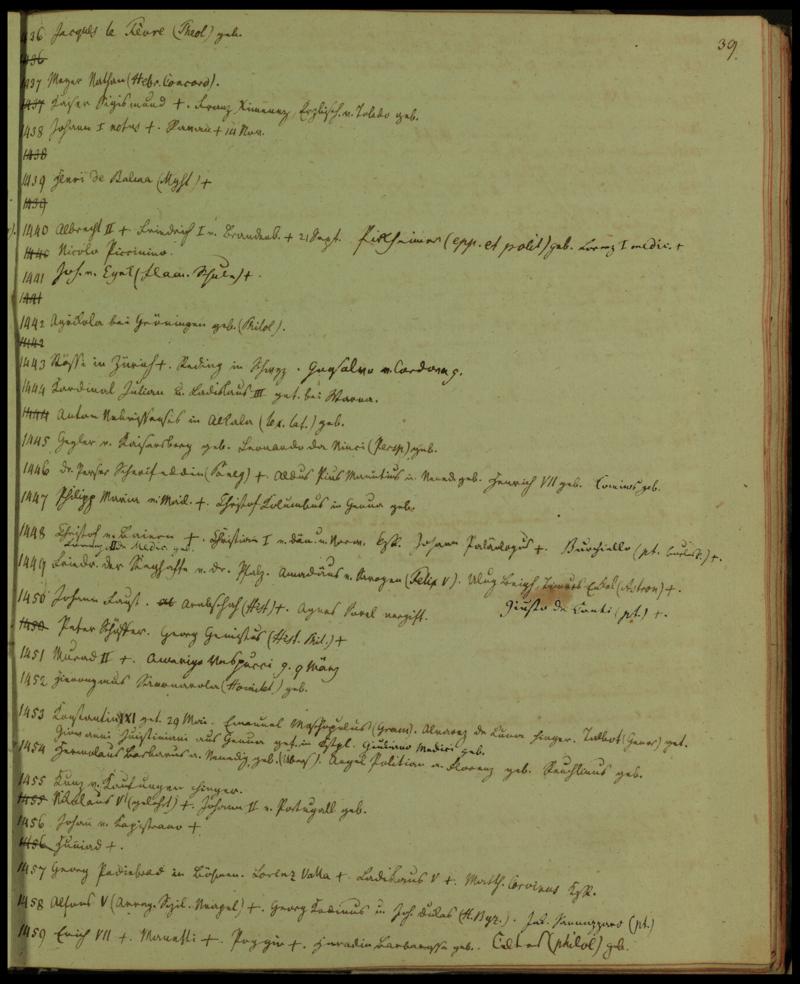 39.
1436 Jacques le Févre (Theol) geb.
1436
1437 Meyer Nathan (Hebr. Concord).
1437 Kaiser Sigismund +. Franz Ximenez, Erzbisch. v. Toledo geb.
1438 Johann I +. + 14 Nov.
1438
1439 Henri de Balma (Myst) +
1439
1440 Albrecht II + Friedrich I v. Brandenb. + 21 Sept. Pirkheimer (epp. et polit) geb. Lorenz I medic. +
1440 Nicolo Piccinino.
1441 Joh. v. Eyck (flaam. Schule) +.
1441
1442 Agrikola bei Gröningen geb. (Philol).
1442
1443 Stüsse in Zürich +. Reding in Schwyz. Gonsalvo v. Cordova g.
1444 Kardinal Julian u. Ladislaus III get. bei Warna.
1444 Anton Nebrissensis in Alkala (lex. lat.) geb.
1445 Geyler v. Kaisersberg geb. Leonardo da Vinci (Persp) geb.
1446 der Perser Scherifeddin +. Aldus Pius Manutius in Vened geb. Henrich VII geb. Comines geb.
1447 Philipp Maria v. Mail. +. Christof Kolumbus in Genua geb.
1448 Christof v. Baiern +. Christian I v. Dän. u. Norw. Kg. Johann Paläologus +. Burchiello (pt. burlesk.) +.
Lorenz II de Medic. geb.
1449 Friedr. der Sieghafte v. der Pfalz. Amadäus v. Savoyen (Felix V). Ulug Beigh (Astron) +.
1450 Johann Faust. Arabschah (Hist) +. Agnes Sorel vergift. Giusto de Conti (pt.) +.
1450 Peter Schöffer. Georg Gemistus (Hist. Phil.) +
1451 Murad II +. Amerigo Vespucci g. 9 März
1452 Hieronymus Savonarola geb.
1453 Konstantin XI get. 29 Mai. Emanuel Moschopulus (Gram). Alvarez de Luna hinger. Talbot (Gener) get.
Giovanni Justiniani aus Genua get. in Kstpl. Giuliano Medici geb.
1454 Hermolaus Barbarus a. Venedig geb. (Übers). Angel Politian a. Florenz geb. Reuchlinus geb.
1455 Kunz v. Kaufungen hinger.
1455 Nikolaus V (gelehrt) +. Johann II v. Portugall geb.
1456 Johan v. Kapistrano +
1456 Huniad +.
1457 Georg Podiebrad in Böhmen. Lorenz Valla +. Ladislaus V +. Matth. Corvinus Kg.
1458 Alfons V (Arrag. Sizil. Neapel) +. Georg Kodinus u. Joh. Dukas (H. Byz.). Jak. Sannazzaro (pt.)
1459 Erich VII +. Manetti +. Poggio +. Horadin Barbarossa geb. Celtes (philol) geb.